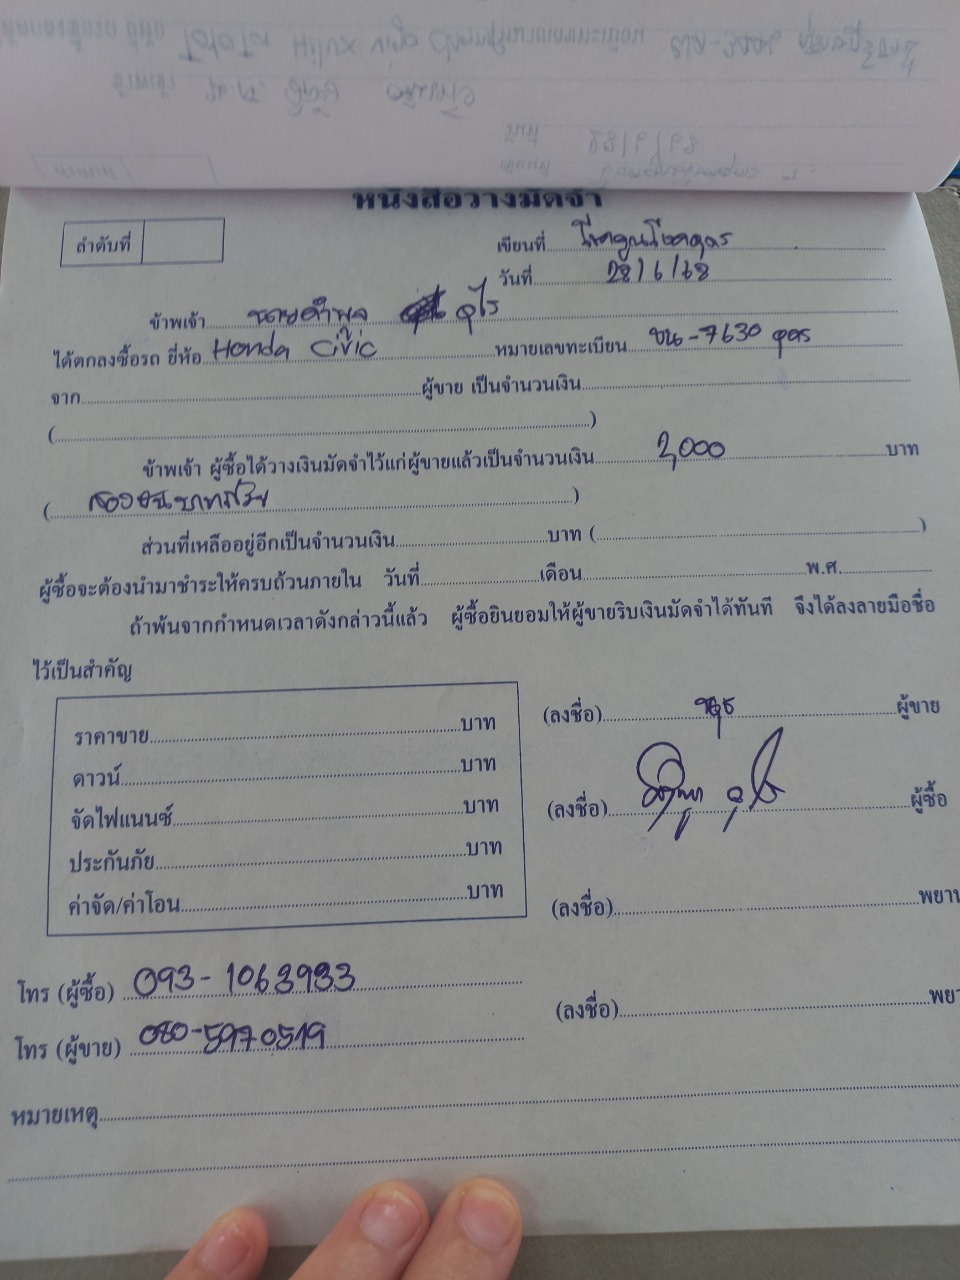 หนังสือวางมัดจำ
ลำดับที่
เขียนที่
วันที่ 28/6/68
ข้าพเจ้า นายคำพูล
ได้ตกลงซื้อรถ ยี่ห้อ Honda Civic หมายเลขทะเบียน ขน-7630 อุดร
จาก ผู้ขาย เป็นจำนวนเงิน
( )
ข้าพเจ้า ผู้ซื้อได้วางเงินมัดจำไว้แก่ผู้ขายแล้วเป็นจำนวนเงิน 2,000 บาท
( สองพันบาทถ้วน )
ส่วนที่เหลืออยู่อีกเป็นจำนวนเงิน บาท ( )
ผู้ซื้อจะต้องนำมาชำระให้ครบถ้วนภายใน วันที่ เดือน พ.ศ.
ถ้าพ้นจากกำหนดเวลาดังกล่าวนี้แล้ว ผู้ซื้อยินยอมให้ผู้ขายริบเงินมัดจำได้ทันที จึงได้ลงลายมือชื่อ
ไว้เป็นสำคัญ
ราคาขาย บาท
ดาวน์ บาท
จัดไฟแนนซ์ บาท
ประกันภัย บาท
ค่าจัด/ค่าโอน บาท
(ลงชื่อ) ผู้ขาย
(ลงชื่อ) ผู้ซื้อ
(ลงชื่อ) พยาน
(ลงชื่อ) พยา
โทร (ผู้ซื้อ) 093-1063933
โทร (ผู้ขาย) 080-5970519
หมายเหตุ